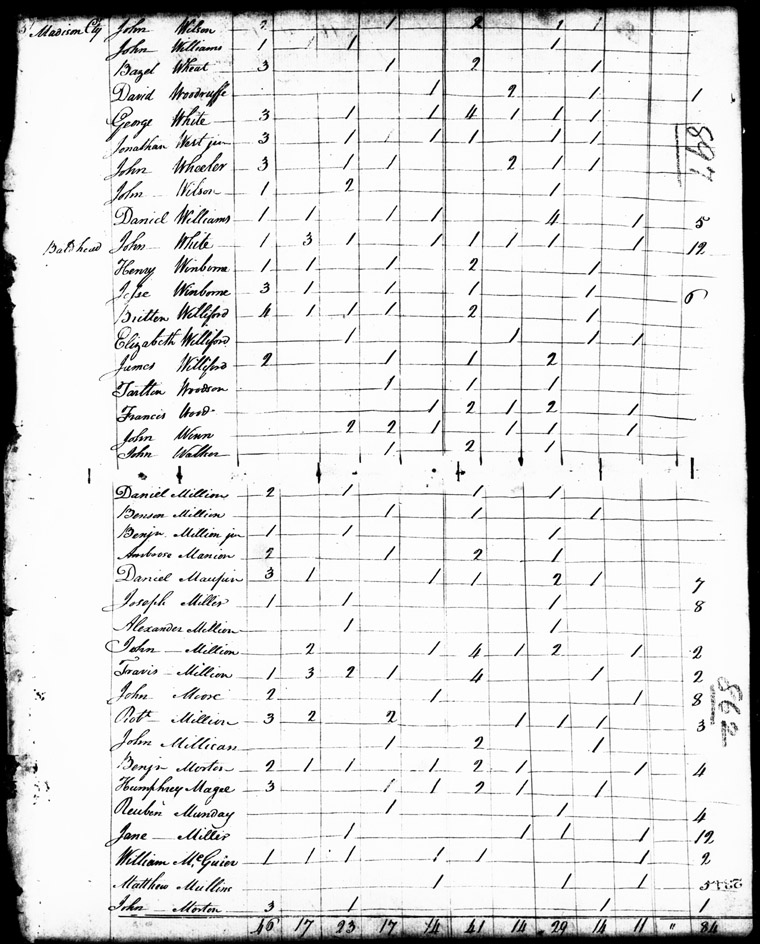 Madison Cty John Wilson 2 1 2 2 1
John Williams 1 1 1
Bazel Wheat 3 1 2 1
David Woodruffe 1 2 1 1
George White 3 1 1 4 1 1 1
Jonathan West jun 3 1 1 1 1 1
John Wheeler 3 1 1 2 1 1
John Wilson 1 2 1
Daniel Williams 1 1 1 1 4 1 5
Bald head John White 1 3 1 1 1 1 1 1 12
Henry Winborne 1 1 1 2 1
Jesse Winborne 3 1 1 1 1 6
Britten Williford 4 1 1 1 2 1
Elizabeth Williford 1 1 1 1
James Williford 2 1 1 2
Tarlton Woodson 1 1 1
Francis Wood 1 2 1 2 1
John Winn 2 2 1 1 1 1
John Walker 1 2 1
897
Daniel Million 2 1 1 1
Benson Million 1 1 1
Benjn. Million jun 1 1 1
Ambrose Manion 2 1 2 1
Daniel Maupin 3 1 1 1 2 1 7
Joseph Miller 1 1 1 8
Alexander Million 1 1
John Million 2 1 4 1 2 1 2
Travis Million 1 3 2 1 4 1 2
John Moore 2 1 1 8
Robt Million 3 2 2 1 1 1 3
John Millican 1 2 1
Benjn Morton 2 1 1 1 2 1 1 4
Humphrey Magee 3 1 1 2 1 1
Reuben Munday 1 1 4
Jane Miller 1 1 1 1 12
William McGuier 1 1 1 1 1 1 2
Matthew Mullins 1 1 1 5
John Morton 3 1 1 1
862
46 17 23 17 14 41 14 29 14 11 " 84